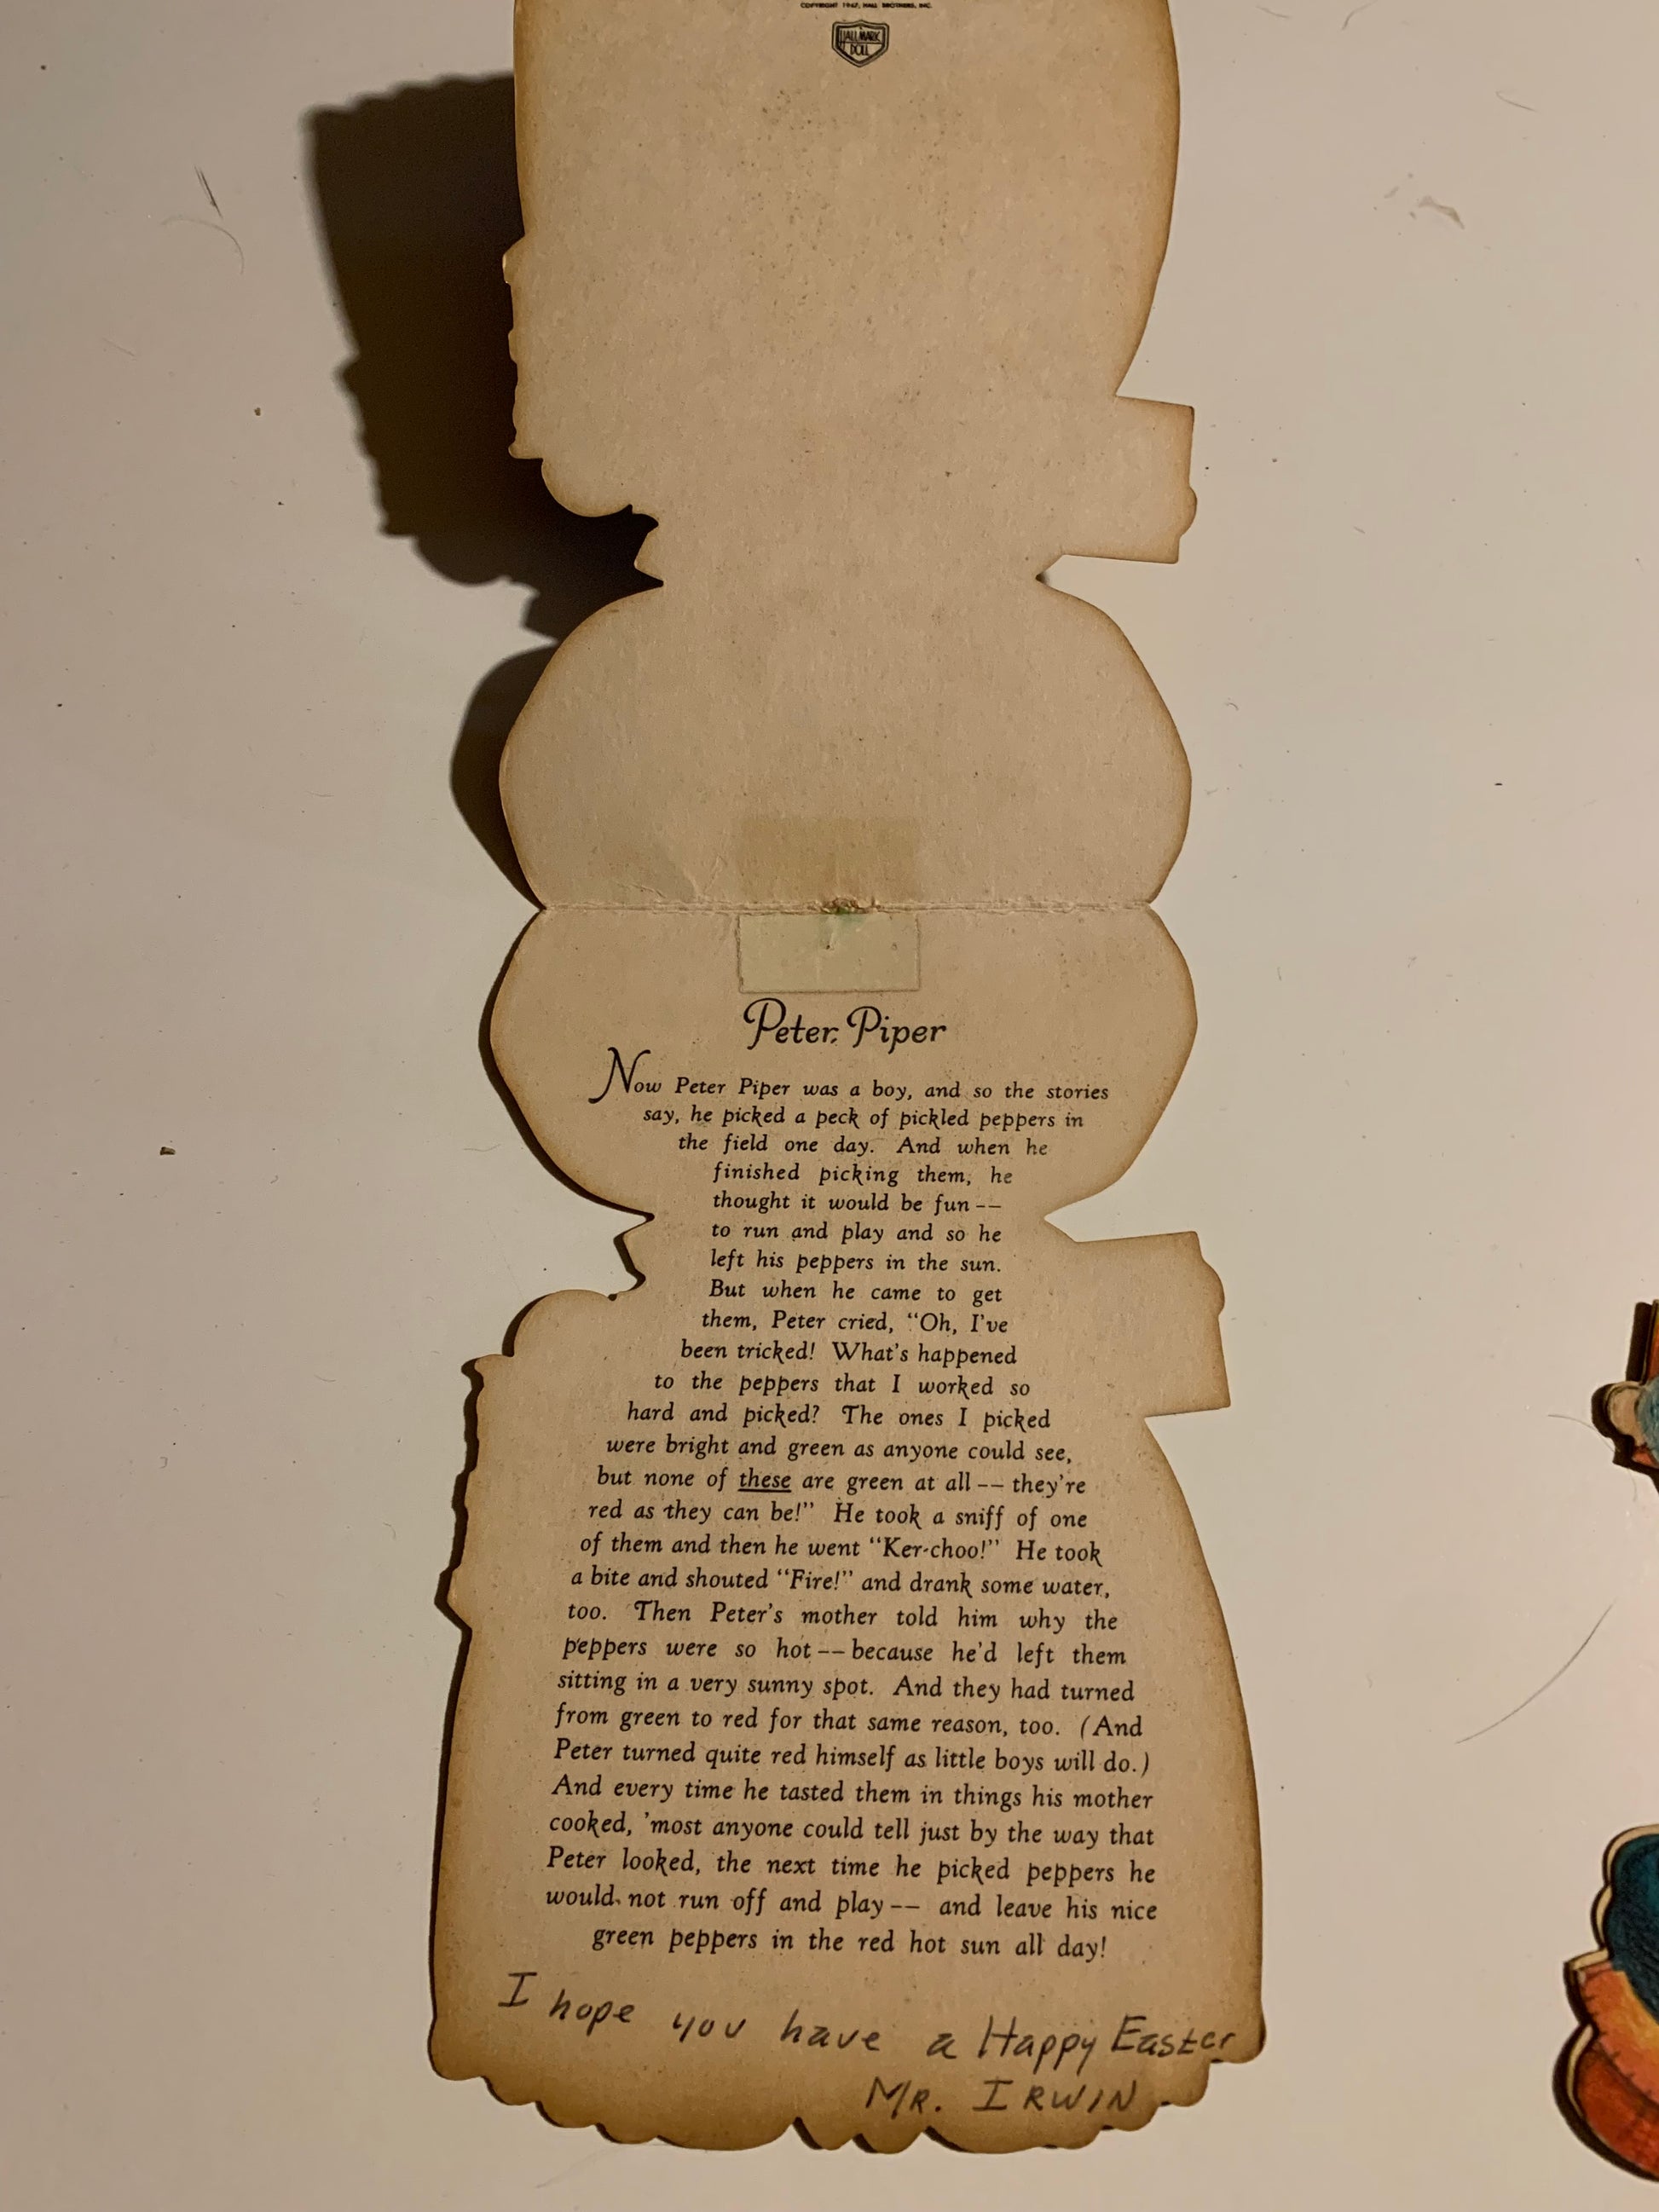 COPYRIGHT 1947, HALL BROTHERS, INC.
HALLMARK
DOLL
Peter Piper
Now Peter Piper was a boy, and so the stories
say, he picked a peck of pickled peppers in
the field one day. And when he
finished picking them, he
thought it would be fun --
to run and play and so he
left his peppers in the sun.
But when he came to get
them, Peter cried, “Oh, I've
been tricked! What's happened
to the peppers that I worked so
hard and picked? The ones I picked
were bright and green as anyone could see,
but none of these are green at all -- they're
red as they can be!” He took a sniff of one
of them and then he went “Ker-choo!” He took
a bite and shouted “Fire!” and drank some water,
too. Then Peter's mother told him why the
peppers were so hot -- because he'd left them
sitting in a very sunny spot. And they had turned
from green to red for that same reason, too. (And
Peter turned quite red himself as little boys will do.)
And every time he tasted them in things his mother
cooked, 'most anyone could tell just by the way that
Peter looked, the next time he picked peppers he
would not run off and play -- and leave his nice
green peppers in the red hot sun all day!
I hope you have a Happy Easter
MR. IRWIN